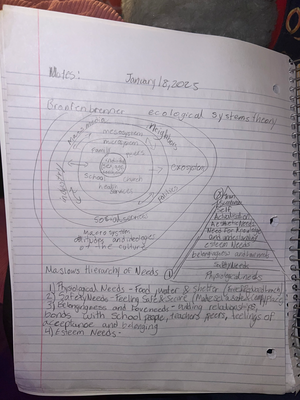 Notes:
January 18, 2025
Bronfenbrenner ecological systems theory
macrosystem
mesosystem
neighbors
microsystem
Family
Peers
School
church
health
services
exosystem
industry
politics
Social service
Macrosystem
attitudes and ideologies
of the culture
Aesthetic Needs
Need for Knowledge
and understanding
esteem Needs
belongingness and love needs
Safety Needs
Physiological needs
1
Maslows Hierarchy of Needs
1) Physiological Needs - Food, water & Shelter
2) Safety Needs - Feeling Safe & Secure
3) belongingness and love needs - building relationships,
bonds with School people, teachers, peers, feelings of
acceptance and belonging
4) Esteem Needs -